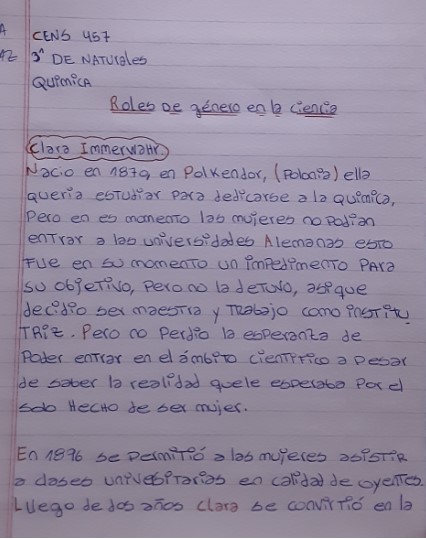 A
CENS 457
AZ 3° DE NATUrales
QUÍMICA
Roles De género en la ciencia
Clara Immerwahr
Nacio en 1879 en Polkendor, (Polonia) ella
quería estudiar para dedicarse a la química,
Pero en es momento las mujeres no Podian
enTrar a las universidades Alemanas esto
Fue en su momento un impedimento PAra
su objetivo, Pero no la detuvo, asi que
decidio ser maestra y Trabajo como institu
TRiz. Pero no Perdio la esperanza de
Poder entrar en el ámbito cientifico a Pesar
de saber la realidad quele esperaba Por el
solo Hecho de ser mujer.
En 1896 se Permitió a las mujeres asisTiR
a clases univesitarias en calidad de oyentes.
Luego de dos años Clara se convirTió en la